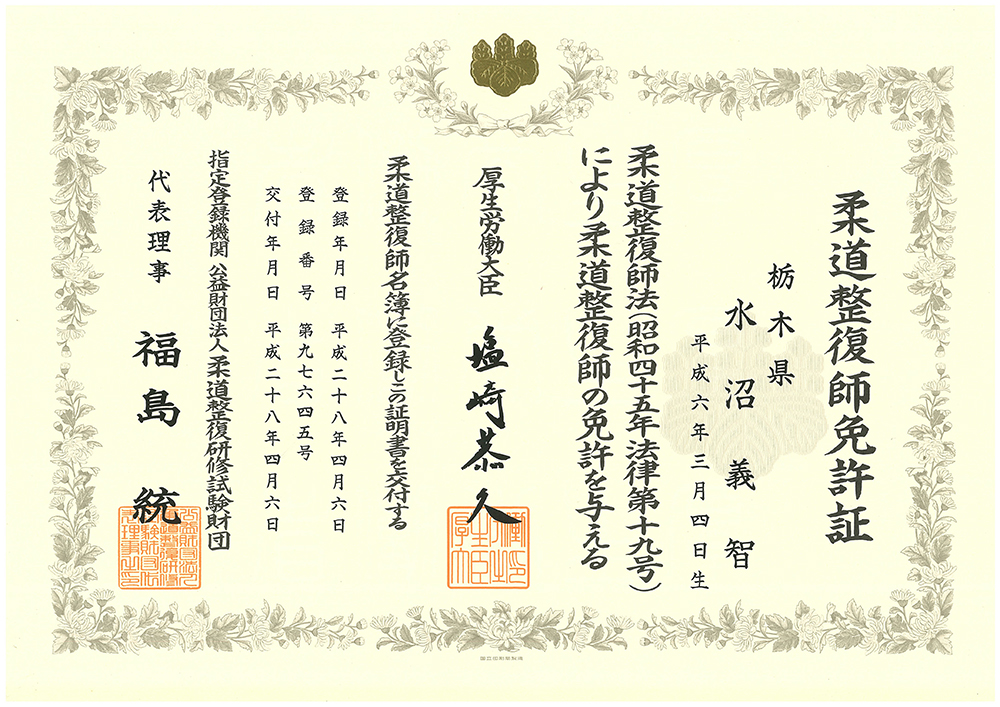 柔道整復師免許証
栃木県
水沼義智
平成六年三月四日生
柔道整復師法(昭和四十五年法律第十九号)
により柔道整復師の免許を与える
厚生労働大臣 塩崎恭久
柔道整復師名簿に登録しこの証明書を交付する
登録年月日 平成二十八年四月六日
登録番号 第九七六四五号
交付年月日 平成二十八年四月六日
指定登録機関 公益財団法人 柔道整復研修試験財団
代表理事 福島統